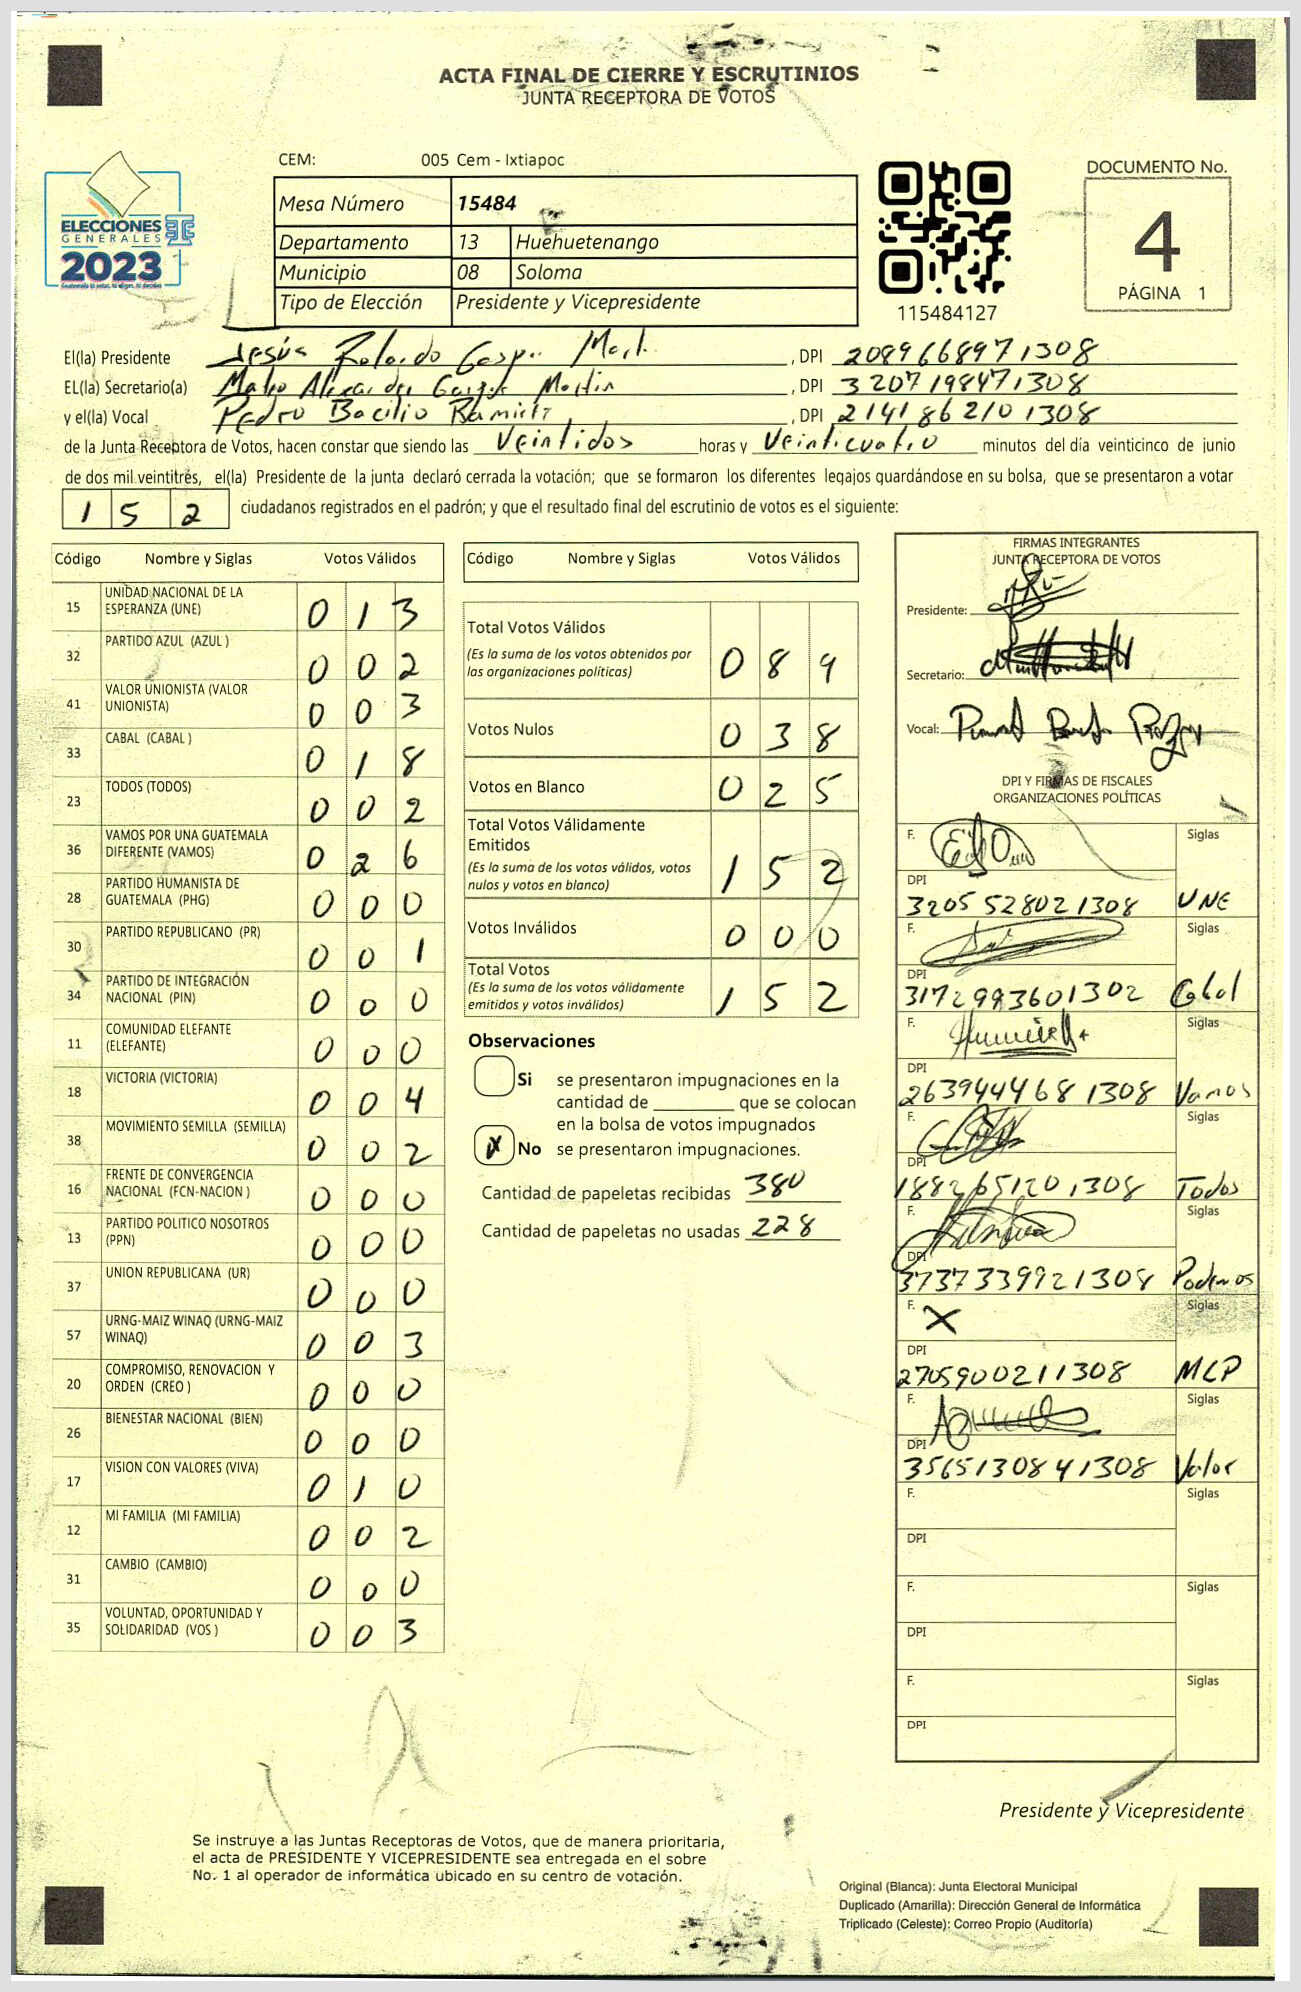 ACTA FINAL DE CIERRE Y ESCRUTINIOS
JUNTA RECEPTORA DE VOTOS
CEM: 005 Cem - Ixtiapoc
Mesa Número 15484
Departamento 13 Huehuetenango
Municipio 08 Soloma
Tipo de Elección Presidente y Vicepresidente
ELECCIONES
GENERALES
2023
115484127
DOCUMENTO No.
4
PÁGINA 1
El(la) Presidente Jesús Rolando Gaspar , DPI 2089668971308
EL(la) Secretario(a) Martin , DPI 3207198471308
y el(la) Vocal Pedro Bacilio Ramirez , DPI 2141862101308
de la Junta Receptora de Votos, hacen constar que siendo las Veintidos horas y Veinticuatro minutos del día veinticinco de junio
de dos mil veintitrés, el(la) Presidente de la junta declaró cerrada la votación; que se formaron los diferentes legajos guardándose en su bolsa, que se presentaron a votar
152 ciudadanos registrados en el padrón; y que el resultado final del escrutinio de votos es el siguiente:
Código Nombre y Siglas Votos Válidos
15 UNIDAD NACIONAL DE LA ESPERANZA (UNE) 013
32 PARTIDO AZUL (AZUL ) 002
41 VALOR UNIONISTA (VALOR UNIONISTA) 003
33 CABAL (CABAL ) 018
23 TODOS (TODOS) 002
36 VAMOS POR UNA GUATEMALA DIFERENTE (VAMOS) 026
28 PARTIDO HUMANISTA DE GUATEMALA (PHG) 000
30 PARTIDO REPUBLICANO (PR) 001
34 PARTIDO DE INTEGRACIÓN NACIONAL (PIN) 000
11 COMUNIDAD ELEFANTE (ELEFANTE) 000
18 VICTORIA (VICTORIA) 004
38 MOVIMIENTO SEMILLA (SEMILLA) 002
16 FRENTE DE CONVERGENCIA NACIONAL (FCN-NACION ) 000
13 PARTIDO POLITICO NOSOTROS (PPN) 000
37 UNION REPUBLICANA (UR) 000
57 URNG-MAIZ WINAQ (URNG-MAIZ WINAQ) 003
20 COMPROMISO, RENOVACION Y ORDEN (CREO ) 000
26 BIENESTAR NACIONAL (BIEN) 000
17 VISION CON VALORES (VIVA) 010
12 MI FAMILIA (MI FAMILIA) 002
31 CAMBIO (CAMBIO) 000
35 VOLUNTAD, OPORTUNIDAD Y SOLIDARIDAD (VOS ) 003
Código Nombre y Siglas Votos Válidos
Total Votos Válidos 089
(Es la suma de los votos obtenidos por
las organizaciones políticas)
Votos Nulos 038
Votos en Blanco 025
Total Votos Válidamente
Emitidos 152
(Es la suma de los votos válidos, votos
nulos y votos en blanco)
Votos Inválidos 000
Total Votos 152
(Es la suma de los votos válidamente
emitidos y votos inválidos)
Observaciones
Si se presentaron impugnaciones en la
cantidad de ________ que se colocan
en la bolsa de votos impugnados
X No se presentaron impugnaciones.
Cantidad de papeletas recibidas 380
Cantidad de papeletas no usadas 228
FIRMAS INTEGRANTES
JUNTA RECEPTORA DE VOTOS
Presidente:
Secretario:
Vocal:
DPI Y FIRMAS DE FISCALES
ORGANIZACIONES POLÍTICAS
F. Siglas
DPI
3205528021308 UNE
F. Siglas
DPI
3172993601302 Cabal
F. Siglas
DPI
2639444681308 Vamos
F. Siglas
DPI
1882651201308 Todos
F. Siglas
DPI
3737339921308 Podemos
F. X Siglas
DPI
2705900211308 MLP
F. Siglas
DPI
3565130841308 Valor
F. Siglas
DPI
F. Siglas
DPI
F. Siglas
DPI
Presidente y Vicepresidente
Se instruye a las Juntas Receptoras de Votos, que de manera prioritaria,
el acta de PRESIDENTE Y VICEPRESIDENTE sea entregada en el sobre
No. 1 al operador de informática ubicado en su centro de votación.
Original (Blanca): Junta Electoral Municipal
Duplicado (Amarilla): Dirección General de Informática
Triplicado (Celeste): Correo Propio (Auditoría)